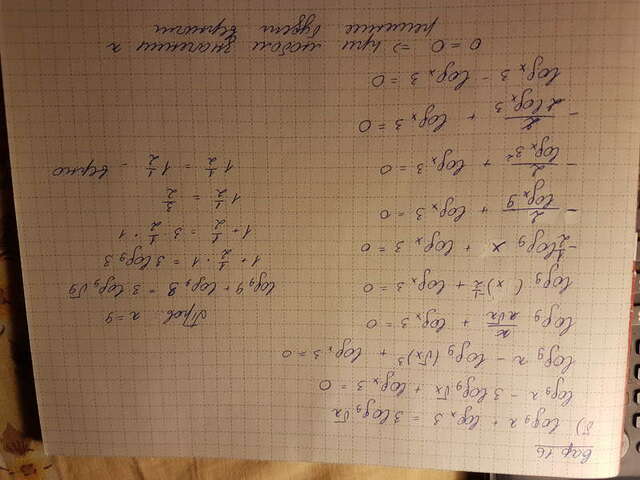 Вар 16
б) log₉x + logₓ3 = 3log₉√x
log₉x - 3log₉√x + logₓ3 = 0
log₉x - log₉(√x)³ + logₓ3 = 0
log₉ x/(x√x) + logₓ3 = 0
log₉(x)^½ + logₓ3 = 0
-½log₉x + logₓ3 = 0
- 2/(logₓ9) + logₓ3 = 0
- 2/(logₓ3²) + logₓ3 = 0
- 2/(2logₓ3) + logₓ3 = 0
logₓ3 - logₓ3 = 0
0 = 0 => при любом значении x
решение будет верными
Пров. x = 9
log₉9 + log₉3 = 3log₉√9
1 + ½ · 1 = 3log₉3
1 + ½ = 3 · ½ · 1
1 ½ = 3/2
1 ½ = 1 ½ - верно